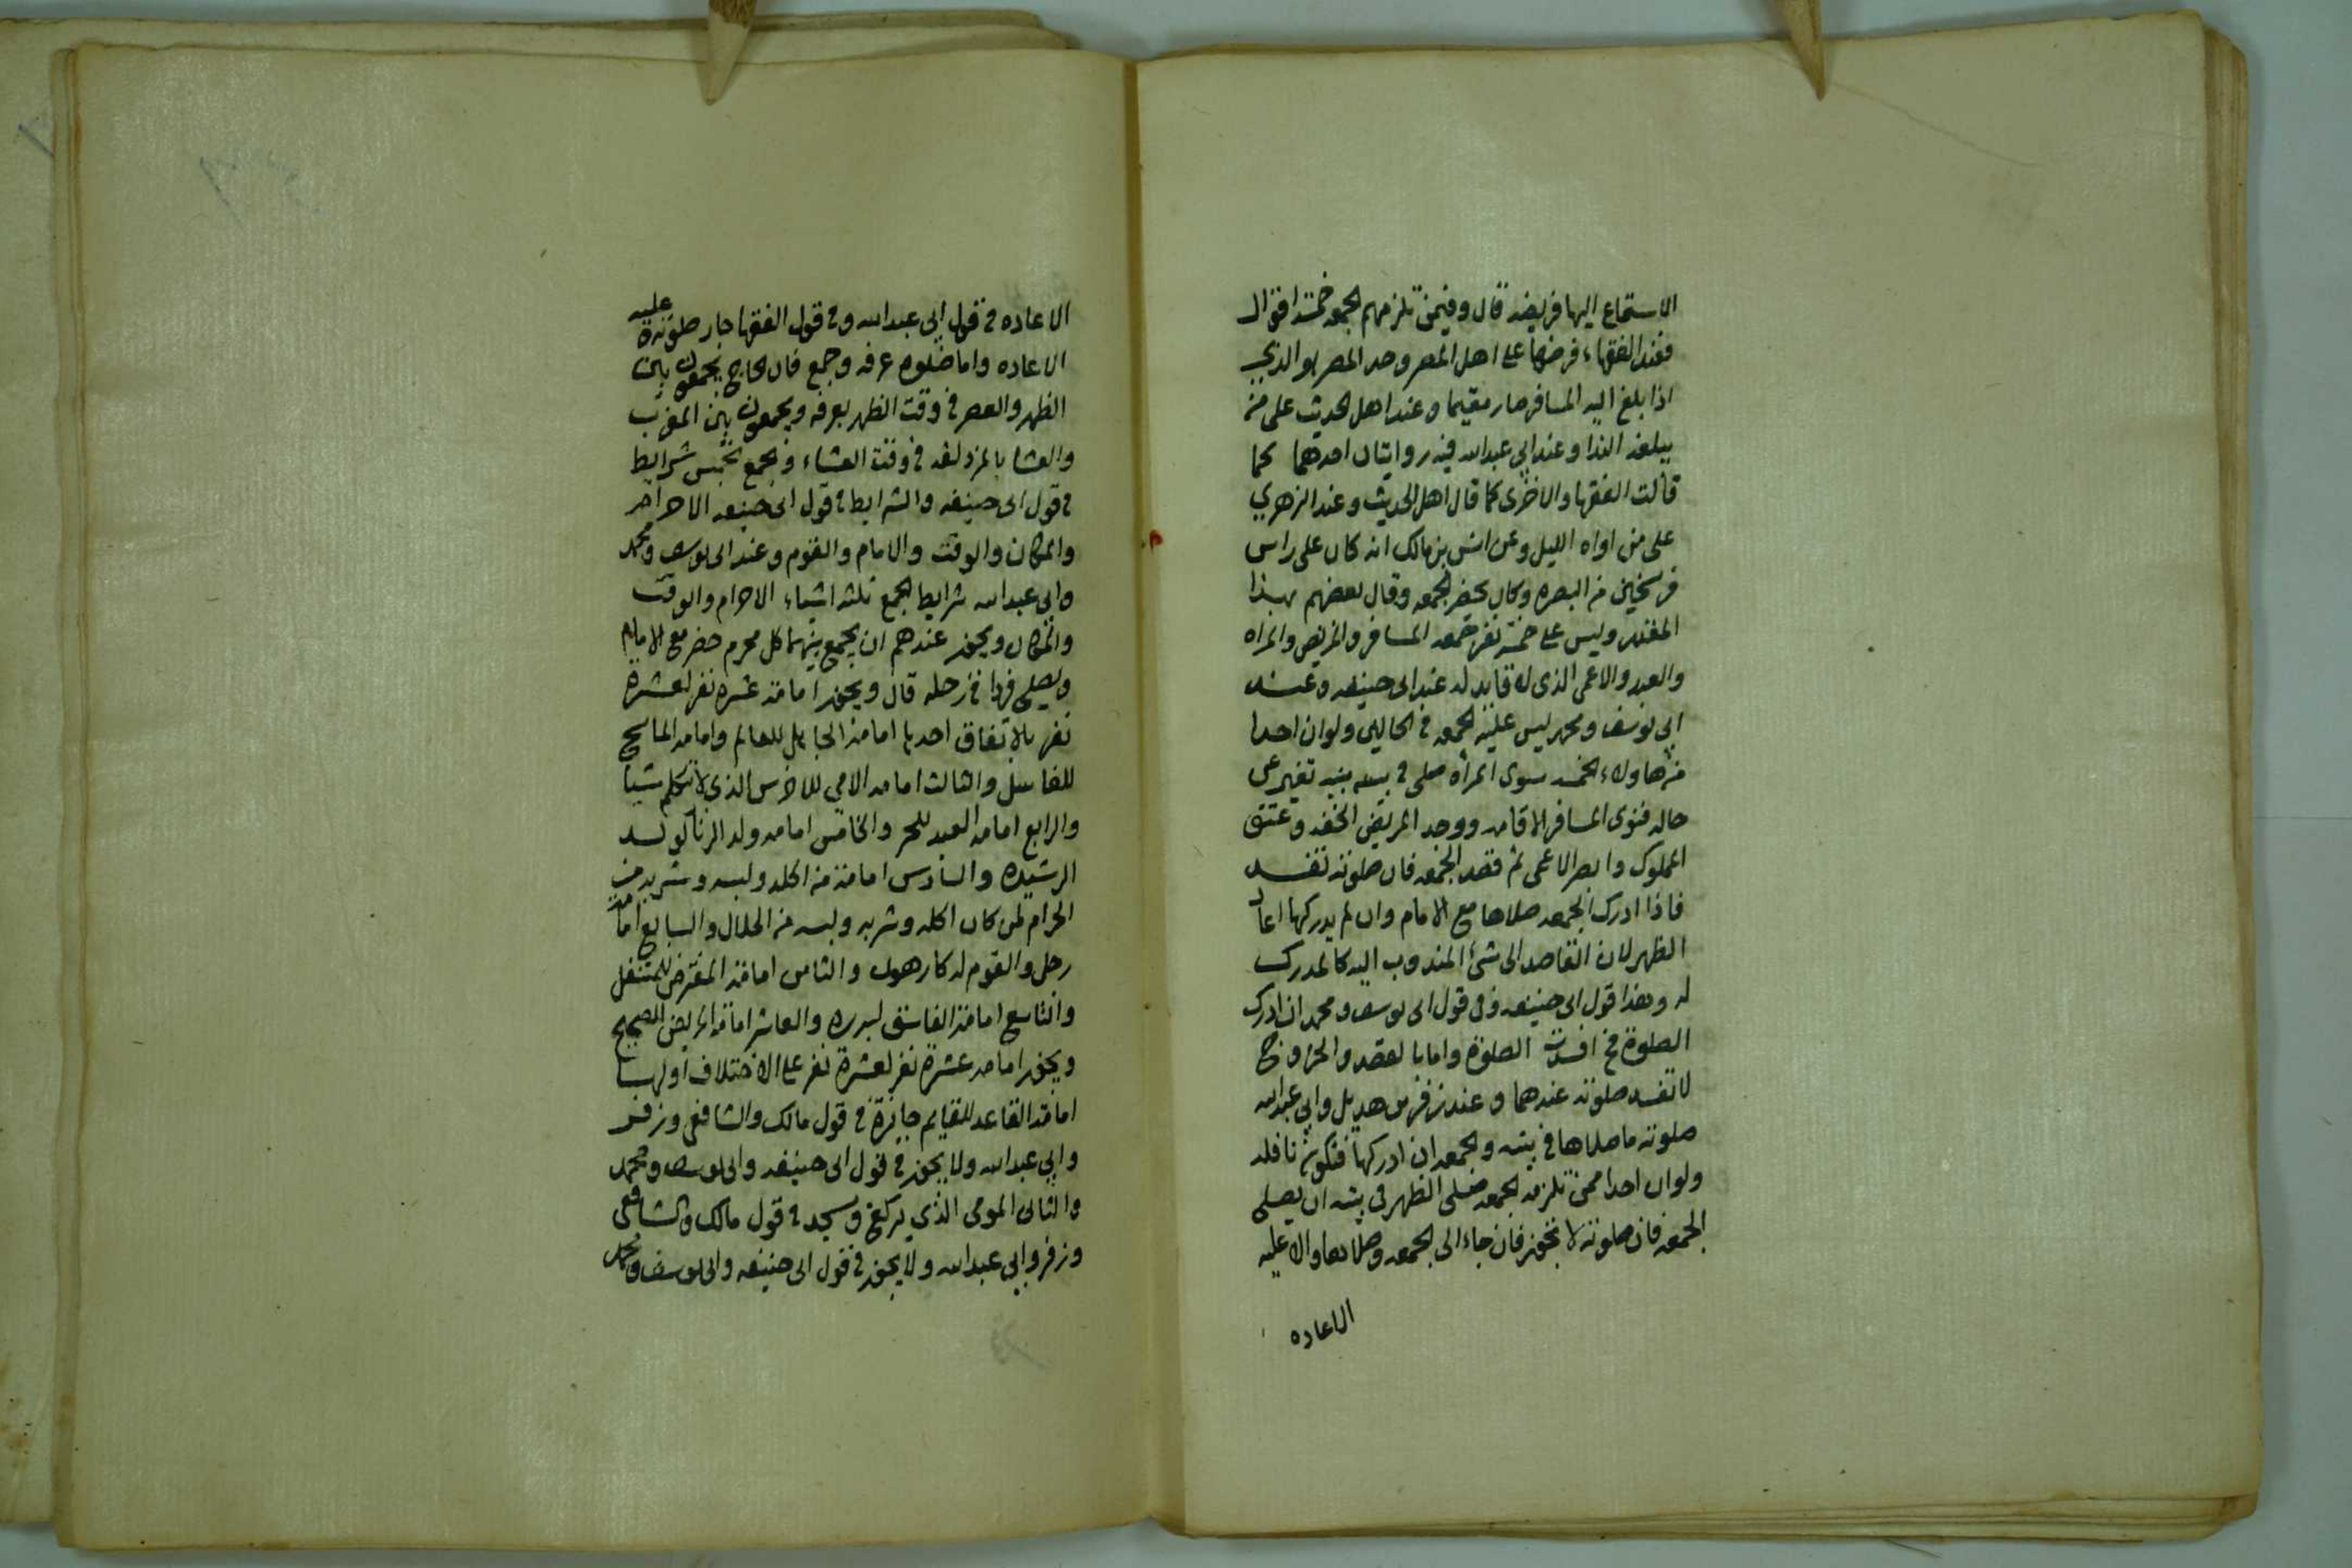 الاستماع اليها فريضه قال وفيمن تلزمهم الجمعه خمسة اقوال
فعند الفقهاء فرضها على اهل المصر وحد المصر هو الذي
اذا بلغ اليه المسافر صار مقيما وعند اهل الحديث على من
يبلغه الندا وعند ابي عبدالله فيه روايتان احدهما كما
قالت الفقها والاخرى كما قال اهل الحديث وعند الزهري
على من اواه الليل وعن انس بن مالك انه كان على راس
فرسخين من البصره وكان يحضر الجمعه وقال بعضهم بهذا
المقدر وليس على خمسة نفر جمعه المسافر والمريض والمراه
والعبد والاعمى الذى له قايد له عند ابى حنيفه وعند
ابى يوسف ومحمد ليس عليه الجمعه في الحالين ولو ان احدا
من هاولاء الخمسه سوى المرأه صلى في بيته ثم تغير عن
حاله فنوى المسافر الاقامه ووجد المريض الخفه وعتق
المملوك وابصر الاعمى ثم قصد الجمعه فان صلوته تفسد
فاذا ادرك الجمعه صلاها مع الامام وان لم يدركها اعاد
الظهر لان القاصد الى شئ المندوب اليه كالمدرك
له وهذا قول ابى حنيفه وفى قول ابى يوسف ومحمد ان ادرك
الصلوة افسدت الصلوة واما با لقصد والخروج
لا تفسد صلوته عندهما وعند زفر بن هديل وابي عبدالله
صلوته ما صلاها في بيته والجمعه ان ادركها فتكون نافله
ولو ان احدا ممن تلزمه الجمعه صلى الظهر فى بيته ان يصلى
الجمعه فان صلوته لا تجوز فان جاء الى الجمعه وصلاها والا عليه
الاعاده
الاعاده في قول ابي عبدالله وفى قول الفقها جاز صلوته عليه
الاعاده واما صلوه عرفه وجمع فان الحاج يجمعون بين
الظهر والعصر في وقت الظهر بعرفه ويجمعون بين المغرب
والعشا بالمزدلفه في وقت العشاء والجمع بخمس شرايط
في قول ابى حنيفه والشرايط فى قول ابى حنيفه الاحرام
والمكان والوقت والامام والقوم وعند ابى يوسف ومحمد
وابى عبدالله شرايط الجمع ثلثه اشياء الاحرام والوقت
والمكان ويجوز عندهم ان يجمع بينهما كل محرم حضر مع الامام
ويصلى فردا في رحله قال ويجوز امامة عشره نفر لعشرة
نفر بالاتفاق احدها امامة الجاهل للعالم وامامه الماسح
للغاسل والثالث امامه الامي للاخرس الذى لا يتكلم شيا
والرابع امامه العبد للحر والخامس امامه ولد الزنا كولد
الرشيده والسادس امامة من اكله ولبسه وشربه من
الحرام لمن كان اكله وشربه ولبسه من الحلال والسابع امامة
رجل والقوم له كارهون والثامن امامة المفترض للمتنفل
والتاسع امامة الفاسق لبرره والعاشر امامة المريض للصحيح
ويجوز امامه عشرة نفر لعشرة نفر على الاختلاف اولها
امامة القاعد للقايم جايزة في قول مالك والشافعى وزفر
وابي عبدالله ولا يجوز في قول ابى حنيفه وابى يوسف ومحمد
والثانى المومى الذي يركع ويسجد في قول مالك والشافعى
وزفر وابي عبدالله ولا يجوز في قول ابى حنيفه وابى يوسف ومحمد